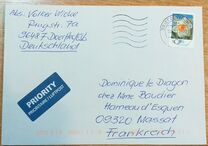 Abs. Volker Wicke
Pringstr. 7a
96487 Dörfles-Esb.
Deutschland
PRIORITY
PRIORITAIRE / LUFTPOST
Dominique le Dragon
chez Mme Baudier
Hameau d'Esquen
09320 Massat
Frankreich